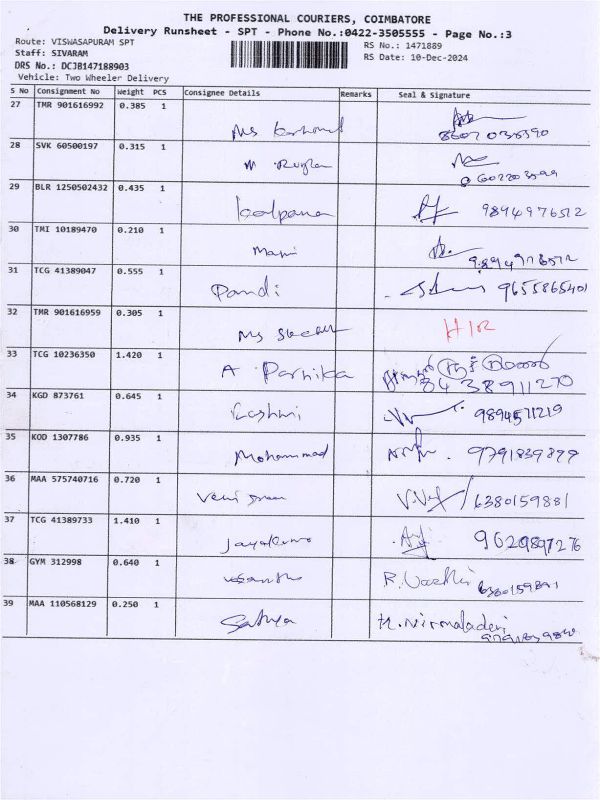 THE PROFESSIONAL COURIERS, COIMBATORE
Delivery Runsheet - SPT - Phone No.:0422-3505555 - Page No.:3
Route: VISWASAPURAM SPT
RS No.: 1471889
Staff: SIVARAM
RS Date: 10-Dec-2024
DRS No.: DCJB147188903
Vehicle: Two Wheeler Delivery
S No Consignment No Weight PCS Consignee Details Remarks Seal & Signature
27 TMR 901616992 0.385 1
Ms
28 SVK 60500197 0.315 1
M
29 BLR 1250502432 0.435 1
kalpana 9894976512
30 TMI 10189470 0.210 1
Mani 9894976512
31 TCG 41389047 0.555 1
Pandi 9655865401
32 TMR 901616959 0.305 1
Ms
33 TCG 10236350 1.420 1
A Parnika 8438911270
34 KGD 873761 0.645 1
Rashmi 9894571219
35 KOD 1307786 0.935 1
Mohammad 9791839899
36 MAA 575740716 0.720 1
6380159881
37 TCG 41389733 1.410 1
9629897276
38 GYM 312998 0.640 1
39 MAA 110568129 0.250 1
Sathya K. Nirmaladevi